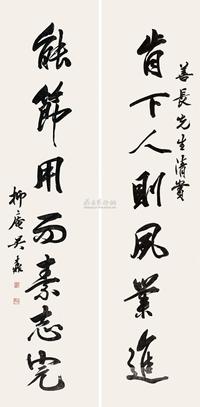 善長先生清賞
肯下人則夙業進
能節用而素志完
柳庵吴